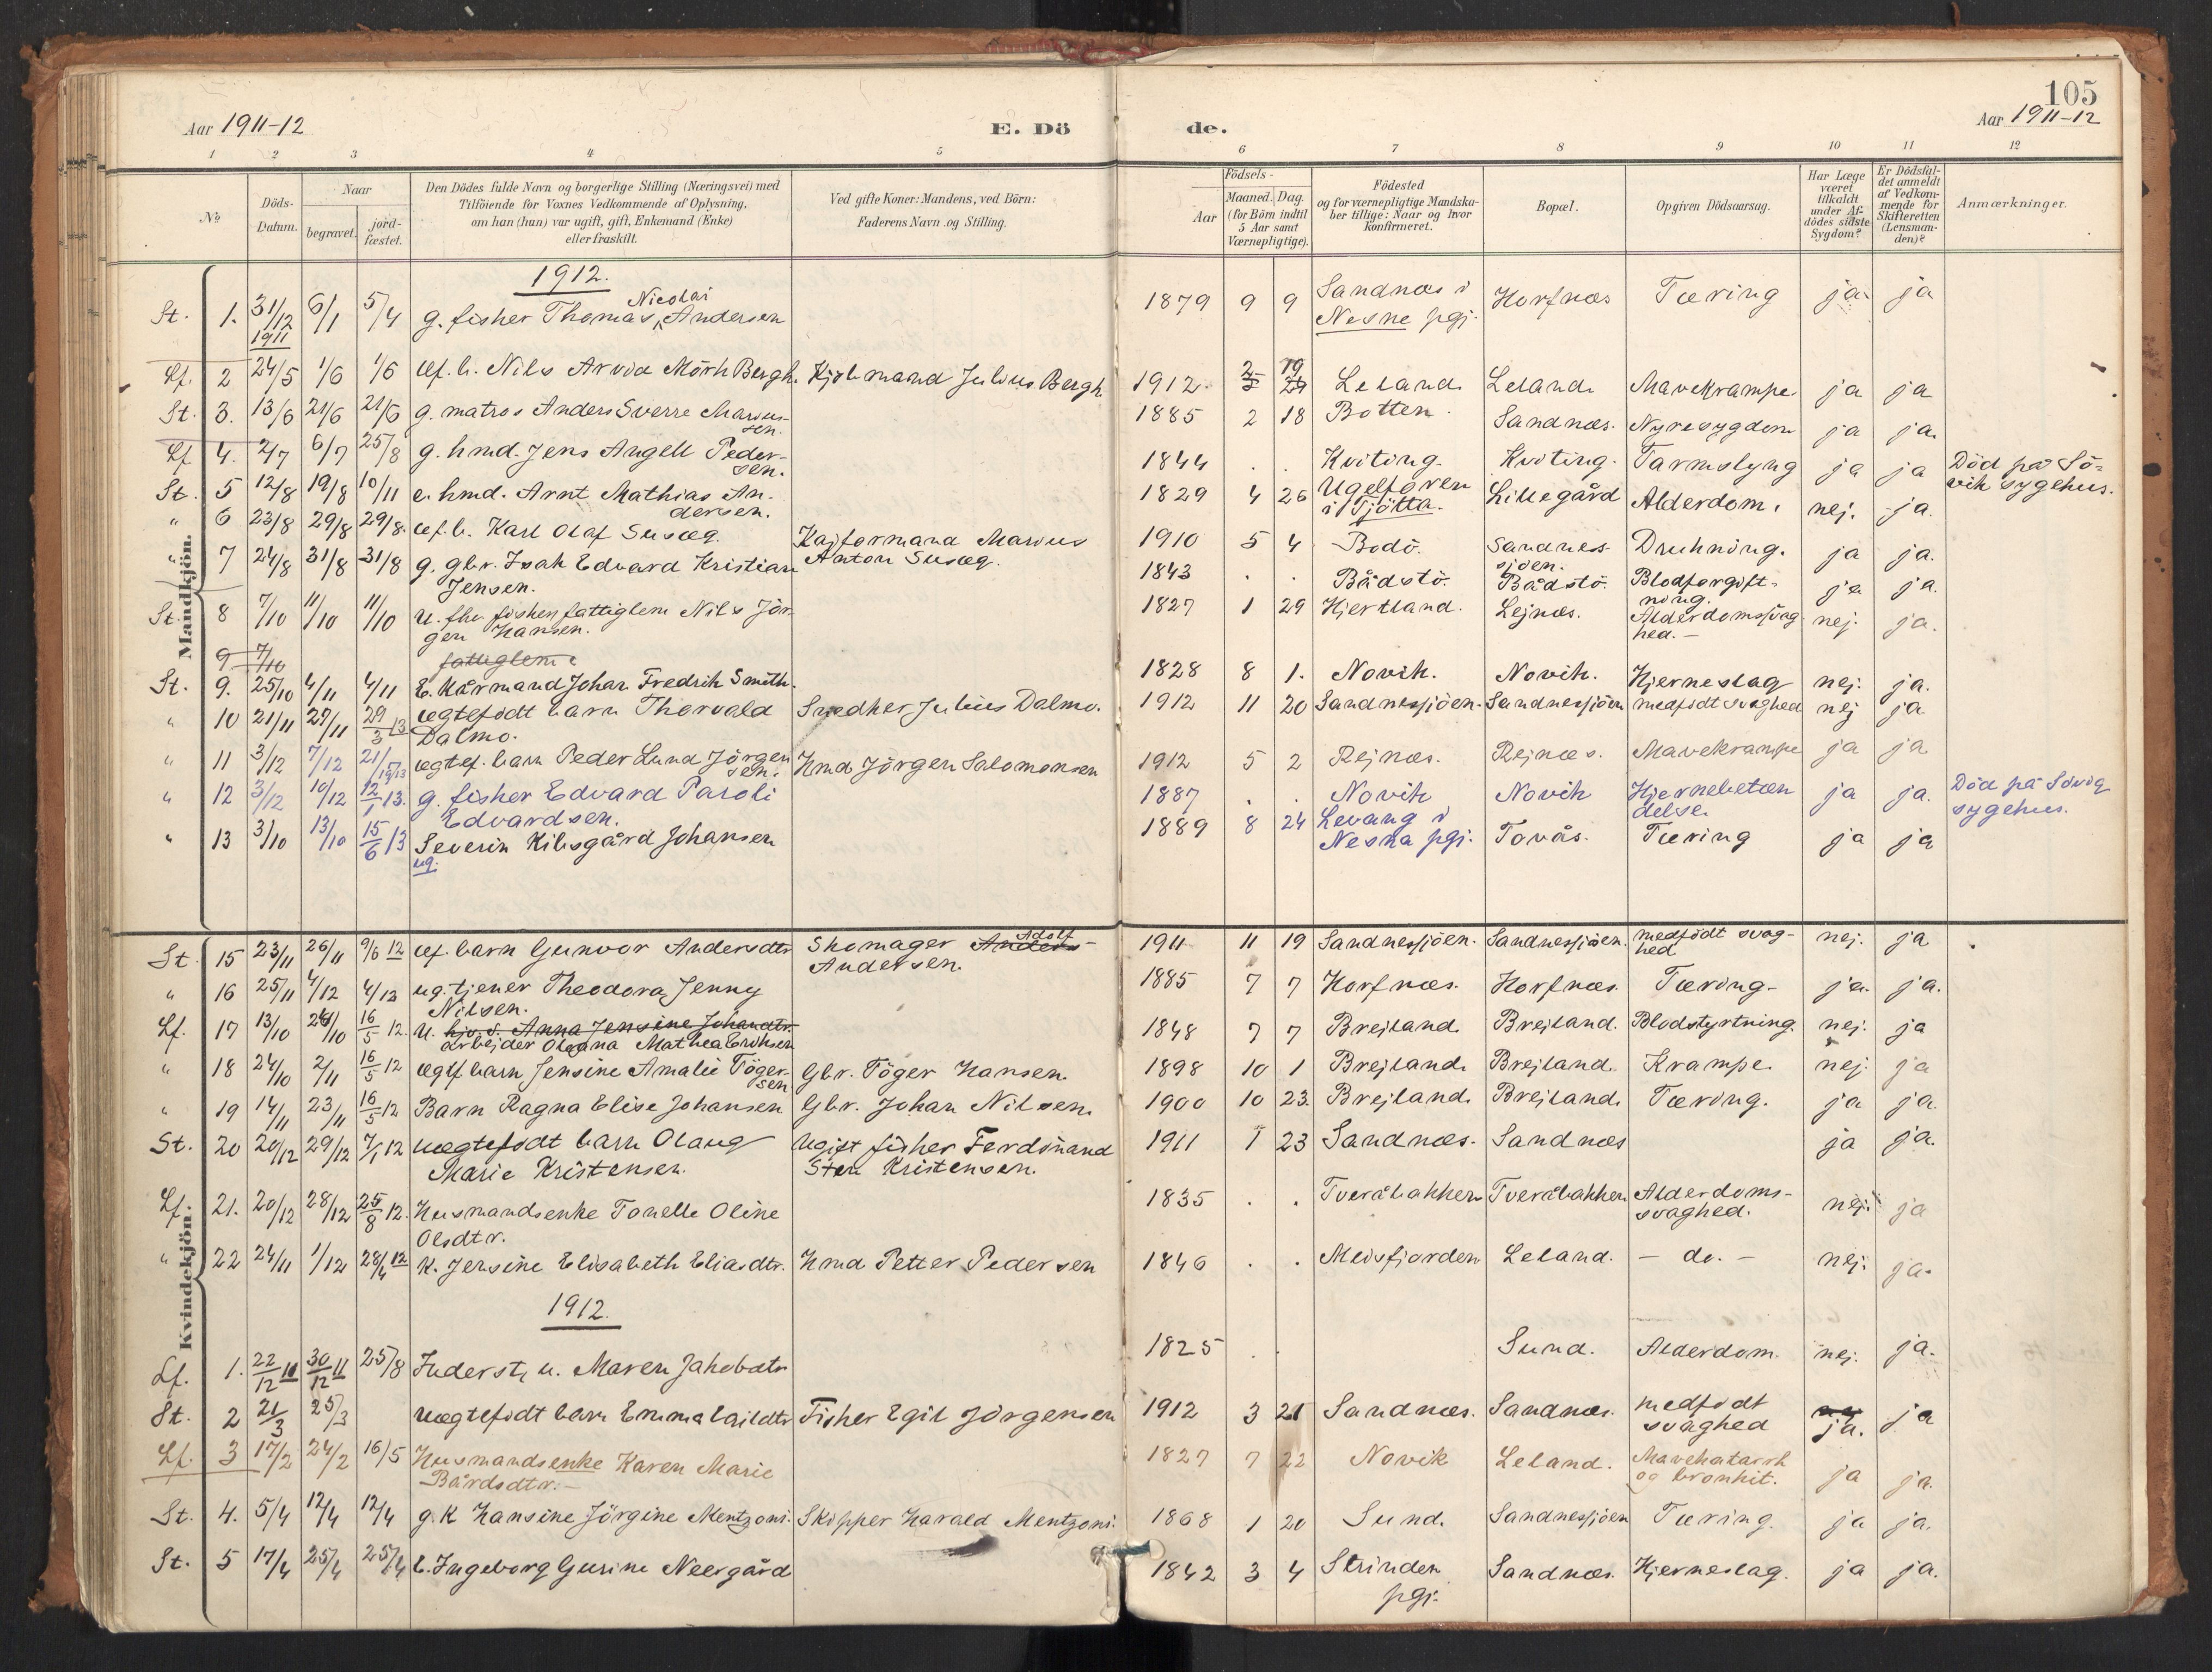 105
Aar 1911-12
E. Dö
de.
Aar 1911-12
1 2 3 4 5 6 7 8 9 10 11 12
No
Döds-Datum.
Naar
begravet.
jord-fæstet.
Den Dödes fulde Navn og borgerlige Stilling (Næringsvei) med
Tilföiende for Voxnes Vedkommende af Oplysning,
om han (hun) var ugift, gift, Enkemand (Enke)
eller fraskilt.
Ved gifte Koner: Mandens, ved Börn:
Faderens Navn og Stilling.
Födsels-
Aar
Maaned.
Dag.
(for Börn indtil
5 Aar samt
Værnepligtige).
Födested
og for værnepligtige Mandska-
ber tillige: Naar og hvor
konfirmeret.
Bopæl.
Opgiven Dödsaarsag.
Har Læge
været
tilkaldt
under Af-
dödes sidste
Sygdom?
Er Dödsfal-
det anmeldt
af Vedkom-
mende for
Skifteretten
(Lensman-
den)?
Anmærkninger.
Mandkjön.
1912.
St. 1. 31/12 1911 6/1 5/4 g. fisker Thomas Nicolai Andersen 1879 9 9 Sandnæs i Nesne pgj. Horfnæs Tæring ja ja
Lf. 2 24/5 1/6 1/6 æf. b. Nils Arvid Mörk Bergh. Kjölmand Julius Bergh 1912 2 19 Leland Leland Mavekrampe ja ja
St. 3. 13/6 21/6 21/6 g. matros Anders Sverre Marius-
sen. 1885 2 18 Botten. Sandnæs. Nyresygdom ja ja.
Lf 4. 2/7 6/7 25/8 g. hmd. Jens Angell Peder-
sen. 1844 . . Kviting. Kviting. Tarmslyng ja ja Död på Sö-
vik sygehus.
St. 5 12/8 19/8 10/11 e. hmd. Arnt Mathias An-
dersen. 1829 4 26 Ugelforen i Tjötta. Lillegård Alderdom. nej. ja.
" 6 23/8 29/8 29/8. æf. b. Karl Olaf Susæg. Kajformand Marius
Anton Susæg. 1910 5 4 Bodö. Sandnes-
sjöen. Drukning. ja ja.
" 7 24/8 31/8 31/8 g. gbr. Isak Edvard Kristian
Jensen. 1843 . . Bådstö. Bådstö. Blodforgift-
ning. ja ja.
St. 8 7/10 11/10 11/10 u. fhv. fisker, fattiglem Nils Jör-
gen Hansen. 1827 1 29 Hjertland. Lejnæs. Alderdomssvag-
hed. - nej. ja.
9 7/10 fattiglem
St. 9. 25/10 4/11 4/11 E. Kårmand Johan Fredrik Smith. 1828 8 1. Novik. Novik. Hjerneslag nej. ja.
" 10 21/11 27/11 29/3 13 ægtefödt barn Thorvald
Dalmo. Snedker Julius Dalmo. 1912 11 20 Sandnessjöen. Sandnessjöen medfödt svaghed nej ja.
" 11 3/12 7/12 21/5 1913 ægtef. barn Peder Lund Jörgen
sen. Hmd Jörgen Salomonsen 1912 5 2 Rejnæs. Rejnæs. Mavekrampe ja ja
" 12 3/12 10/12 12/1 13. g. fisker Edvard Paroli
Edvardsen. 1887 . . Novik Novik Hjernebetæn
delse ja ja. Död på Sövig
sygehus.
" 13 3/10 13/10 15/6 13 Severin Kibsgård Johansen
ug. 1889 8 24 Levang i
Nesna pgj. Tovås. Tæring ja ja
Kvindekjön.
St. 15 23/11 26/11 9/6 12 æf. barn Gunvor Andersdtr Skomager Anders Adolf
Andersen. 1911 11 19 Sandnessjöen. Sandnessjöen. medfödt svag-
hed nej. ja
" 16 25/11 4/12 4/12 ug. tjener Theodora Jenny
Nilsen. 1885 7 7 Horfnæs. Horfnæs. Tæring. ja. ja.
Lf. 17 13/10 26/10 16/5 12. u. hjv. s. Anna Jensine Johandtr.
arbejder Oleana Mathea Eriksen 1848 7 7 Brejland. Brejland. Blodstyrtning. nej. ja
" 18 24/10 2/11 16/5 12 ægtf barn Jensine Amalie Töger-
sen Gbr. Töger Hansen. 1898 10 1 Brejland. Brejland. Krampe. nej. ja
" 19 14/11 23/11 16/5 12 Barn Ragna Elise Johansen Gbr. Johan Nilsen. 1900 10 23 Brejland. Brejland. Tæring. ja ja.
St. 20 20/12 29/12 7/1 12 uægtefödt barn Olaug
Marie Kristensen. Ugift fisker Ferdinand
Sten Kristensen. 1911 1 23 Sandnæs. Sandnæs ja ja.
Lf. 21. 20/12 28/12 25/8 12. Husmandsenke Tonelle Oline
Olsdtr. 1835 . . Tveråbakken Tveråbakken Alderdoms-
svaghed. nej. ja
" 22 24/11 1/12 28/4 12 K. Jensine Elisabeth Eliasdtr. Hmd Petter Pedersen 1846 . . Meisfjorden Leland. - do. - nej. ja.
1912.
Lf. 1. 22/12 11 30/12 11 25/8 Inderst, u. Maren Jakobdtr 1825 . . Sund. Alderdom. nej. ja.
St. 2 21/3 25/3 uægtefödt barn Emmalaildtr Fisker Egil Jörgensen 1912 3 21 Sandnæs. Sandnæs. medfödt
svaghed ja. ja
Lf. 3 17/2 24/2 16/5 Husmandsenke Karen Marie
Bårdsdtr. - 1827 7 22 Novik Leland. Mavekatarrh
og bronkit. ja ja.
St. 4. 5/4 12/4 12/4 g. K Hansine Jörgine Mentzoni. Skipper Harald Mentzoni. 1868 1 20 Sund. Sandnessjöen Tæring. ja ja.
St. 5 17/4 25/4 25/4 E. Ingeborg Gurine Neergård 1842 3 4 Strinden
pgj. Sandnæs. Hjerneslag. ja ja.